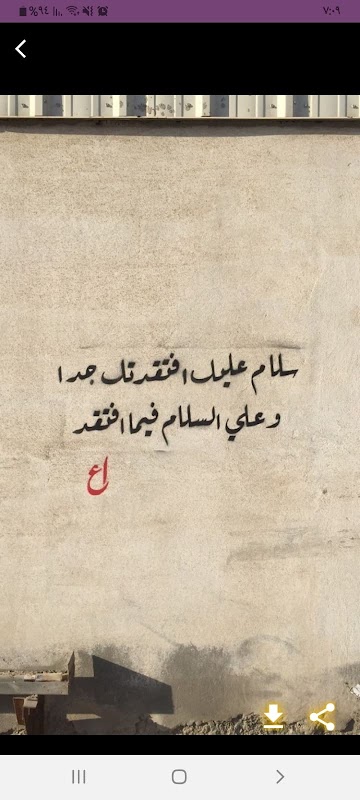 ٧:٠٩
٪٩٤
سلام عليك افتقدتك جدا
وعلي السلام فيما افتقد
اع